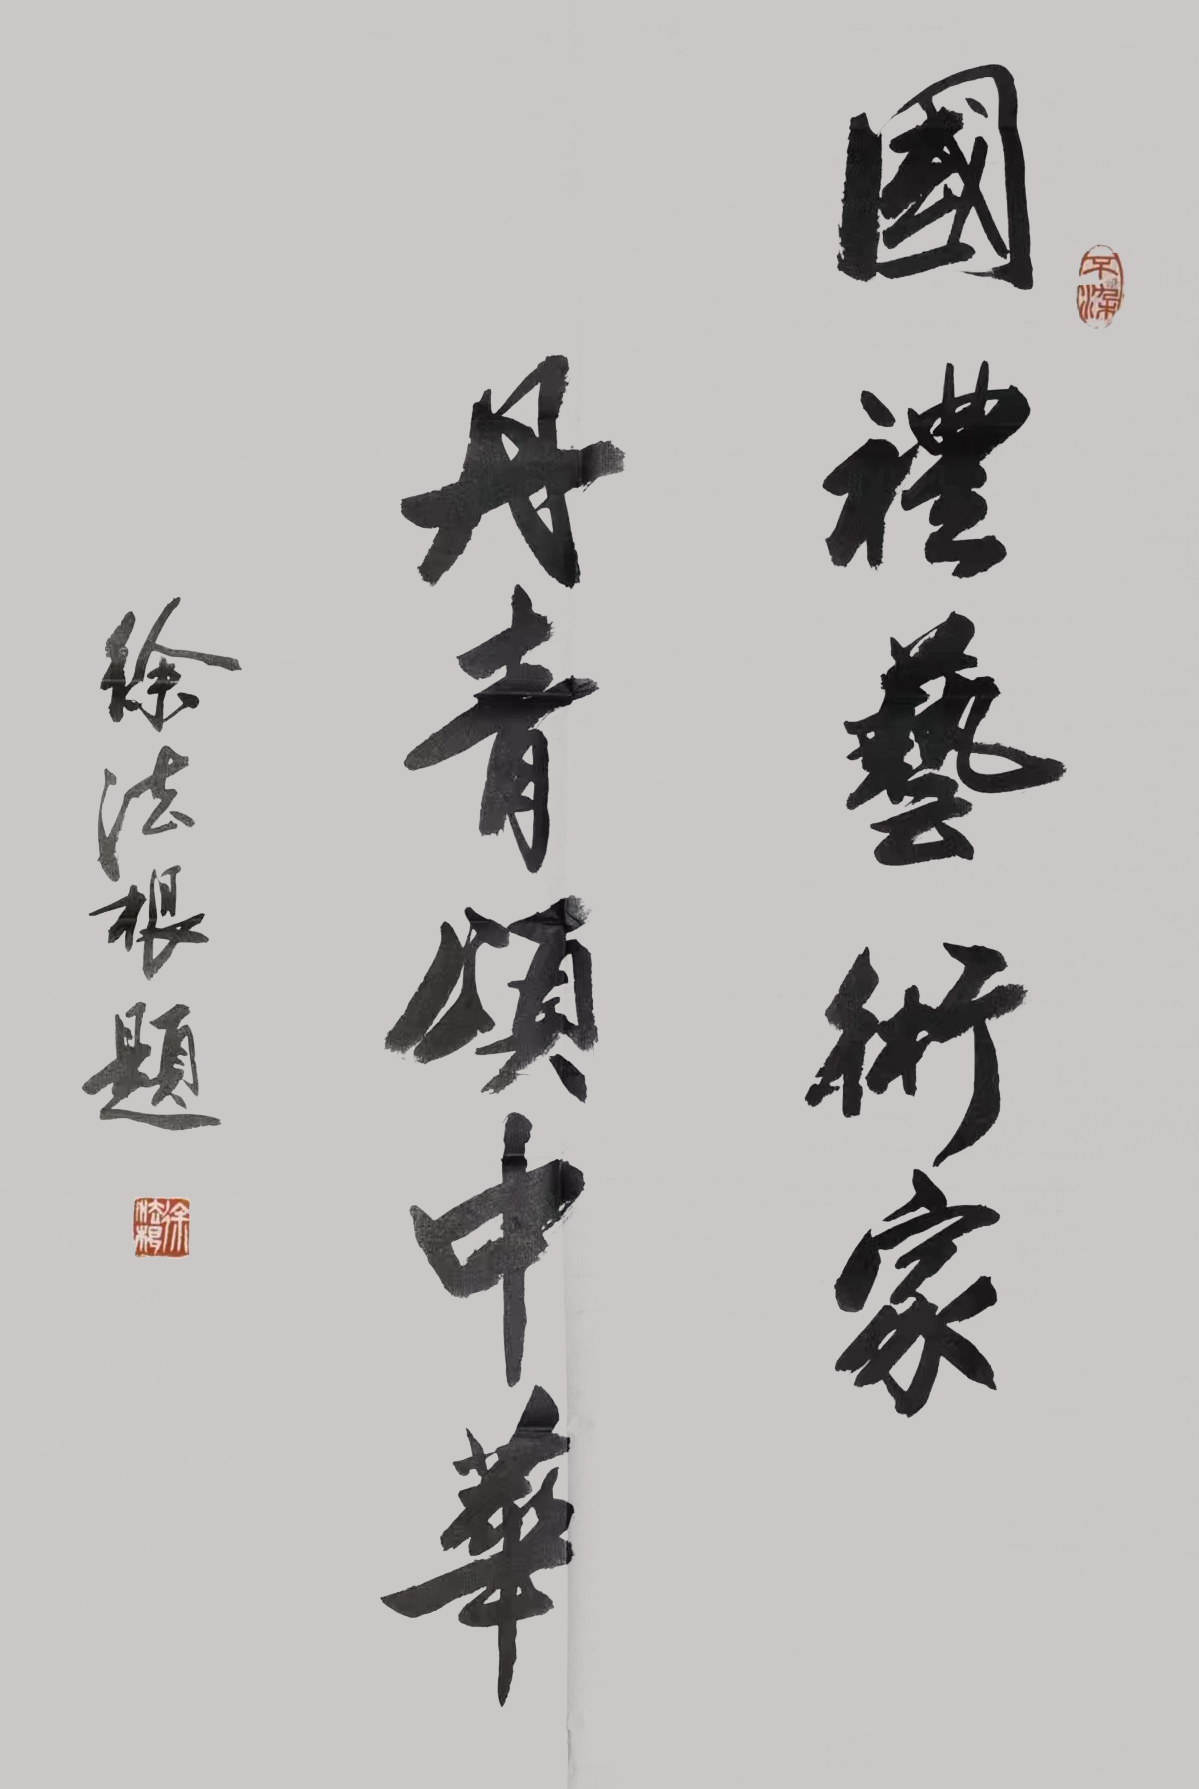 國禮藝術家
丹青頌中華
徐法根題
徐法根